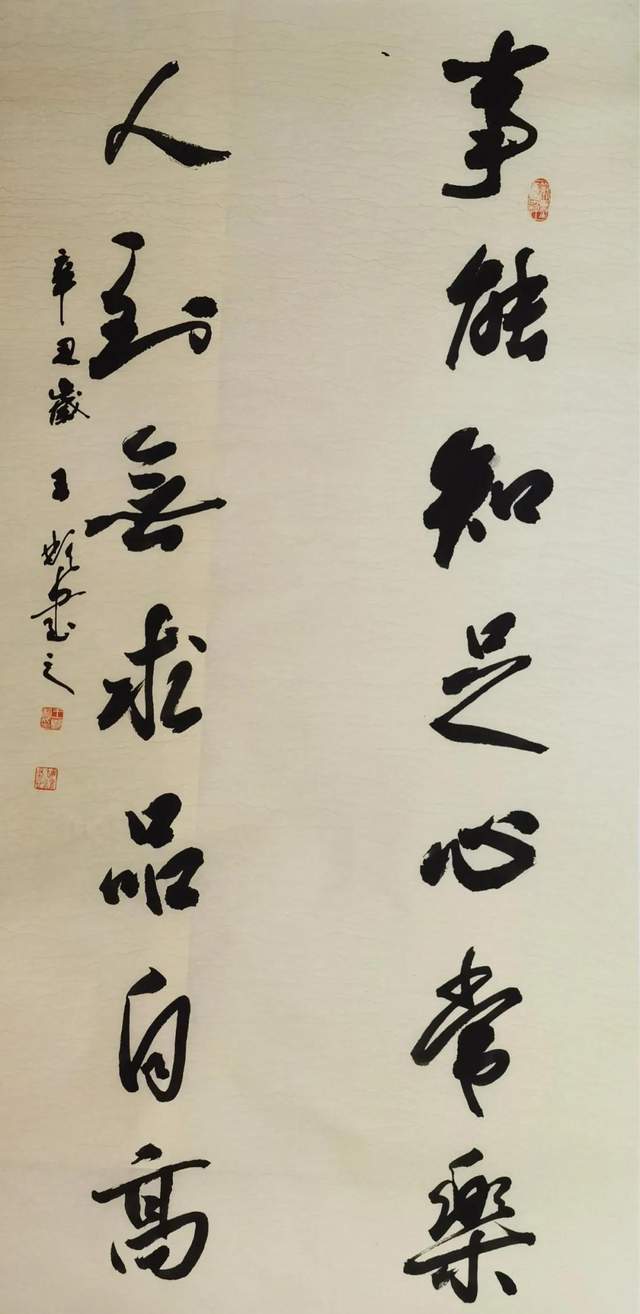 事能知足心常樂
人到無求品自高
辛丑歲 王 書之